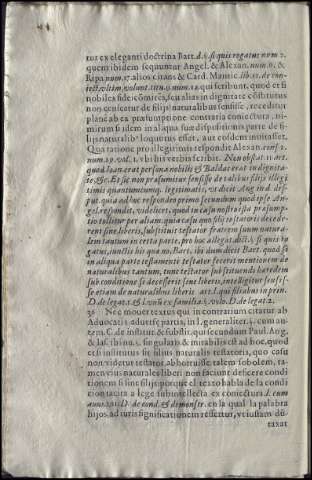 tur ex eleganti doctrina Bart. d. §. si quis rogatus num 2.
quem ibidem sequuntur Angel. & Alexan. num. 6. &
Ripa num. 17. alios citans & Card. Mantic. lib. 11. de con-
iect. vltim. volunt. titu. 9. num. 12. qui scribunt, quod et si
nobilis fideicōmites, seu alias in dignitate cōstitutus
non censeatur de filijs naturalibus sensisse, receditor
planè ab ea præsumptione contraria coniectura, ni-
mirum si idem in aliqua suæ dispositionis parte de fi-
lijs naturalibº loquutus esset, aut eosdem inuitasset.
Qua ratione pro illegitimis respondit Alexan. cons. 2.
num. 19. vol. 1. vbi his verbis scribit. Non obstat
quod Ioan. erat persona nobilis & Baldas erat in dignita-
te &c. Et sic non præsumitur sensisse de talibus filijs illegi
timis quantumcumque legitimatis, vt dicit Ang in d es-
put. quia ad huc respondeo primo secundum quod ipse An-
gel. respondit, videlicet, quod in casu nostro ista præsump-
tio tollitur per aliam. quia casu quo filij testatoris decede-
rent sine liberis, substituit testator fratrem suum natura-
lem tantum in certa parte, pro hoc allegat dict. §. si quis ro
gatus, iunctis his quæ no. Bart. ibi dum dicit Bart. quod si
in aliqua parte testamenti testator fecerit mentionem de
naturalibus tantum, tunc testator substituendo hæredem
sub conditione si decesserit sine liberis, intelligitur sensis-
se etiam de naturalibus liberis
D. de legat. 1. & l. vnū ex familia. §. vlo. D. de legat. 2.
36 Nec mouet textus qui in contrarium citatur ab
Aduocatis aduersæ partis, in l. generaliter. §. cum au-
tem. C. de institut. & substit. qui secundum Paul. Ang.
& Ias. ibi nu. 5. singularis & mirabilis est ad hoc, quod
etsi instituttus sit filius naturalis testatoris, quo casu
non videtur testator abhorruisse talem sobolem, ta-
men eius naturales liberi non faciunt deficere condi
tionem si sine filijs: porque el texto habla de la condi
cion tacita a lege subintellecta ex coniectura l. cum
auus. 102. D. de cond. & demonstr. en la qual la palabra
hijos, ad iuris significationem refertur, vt iussam du-
taxat